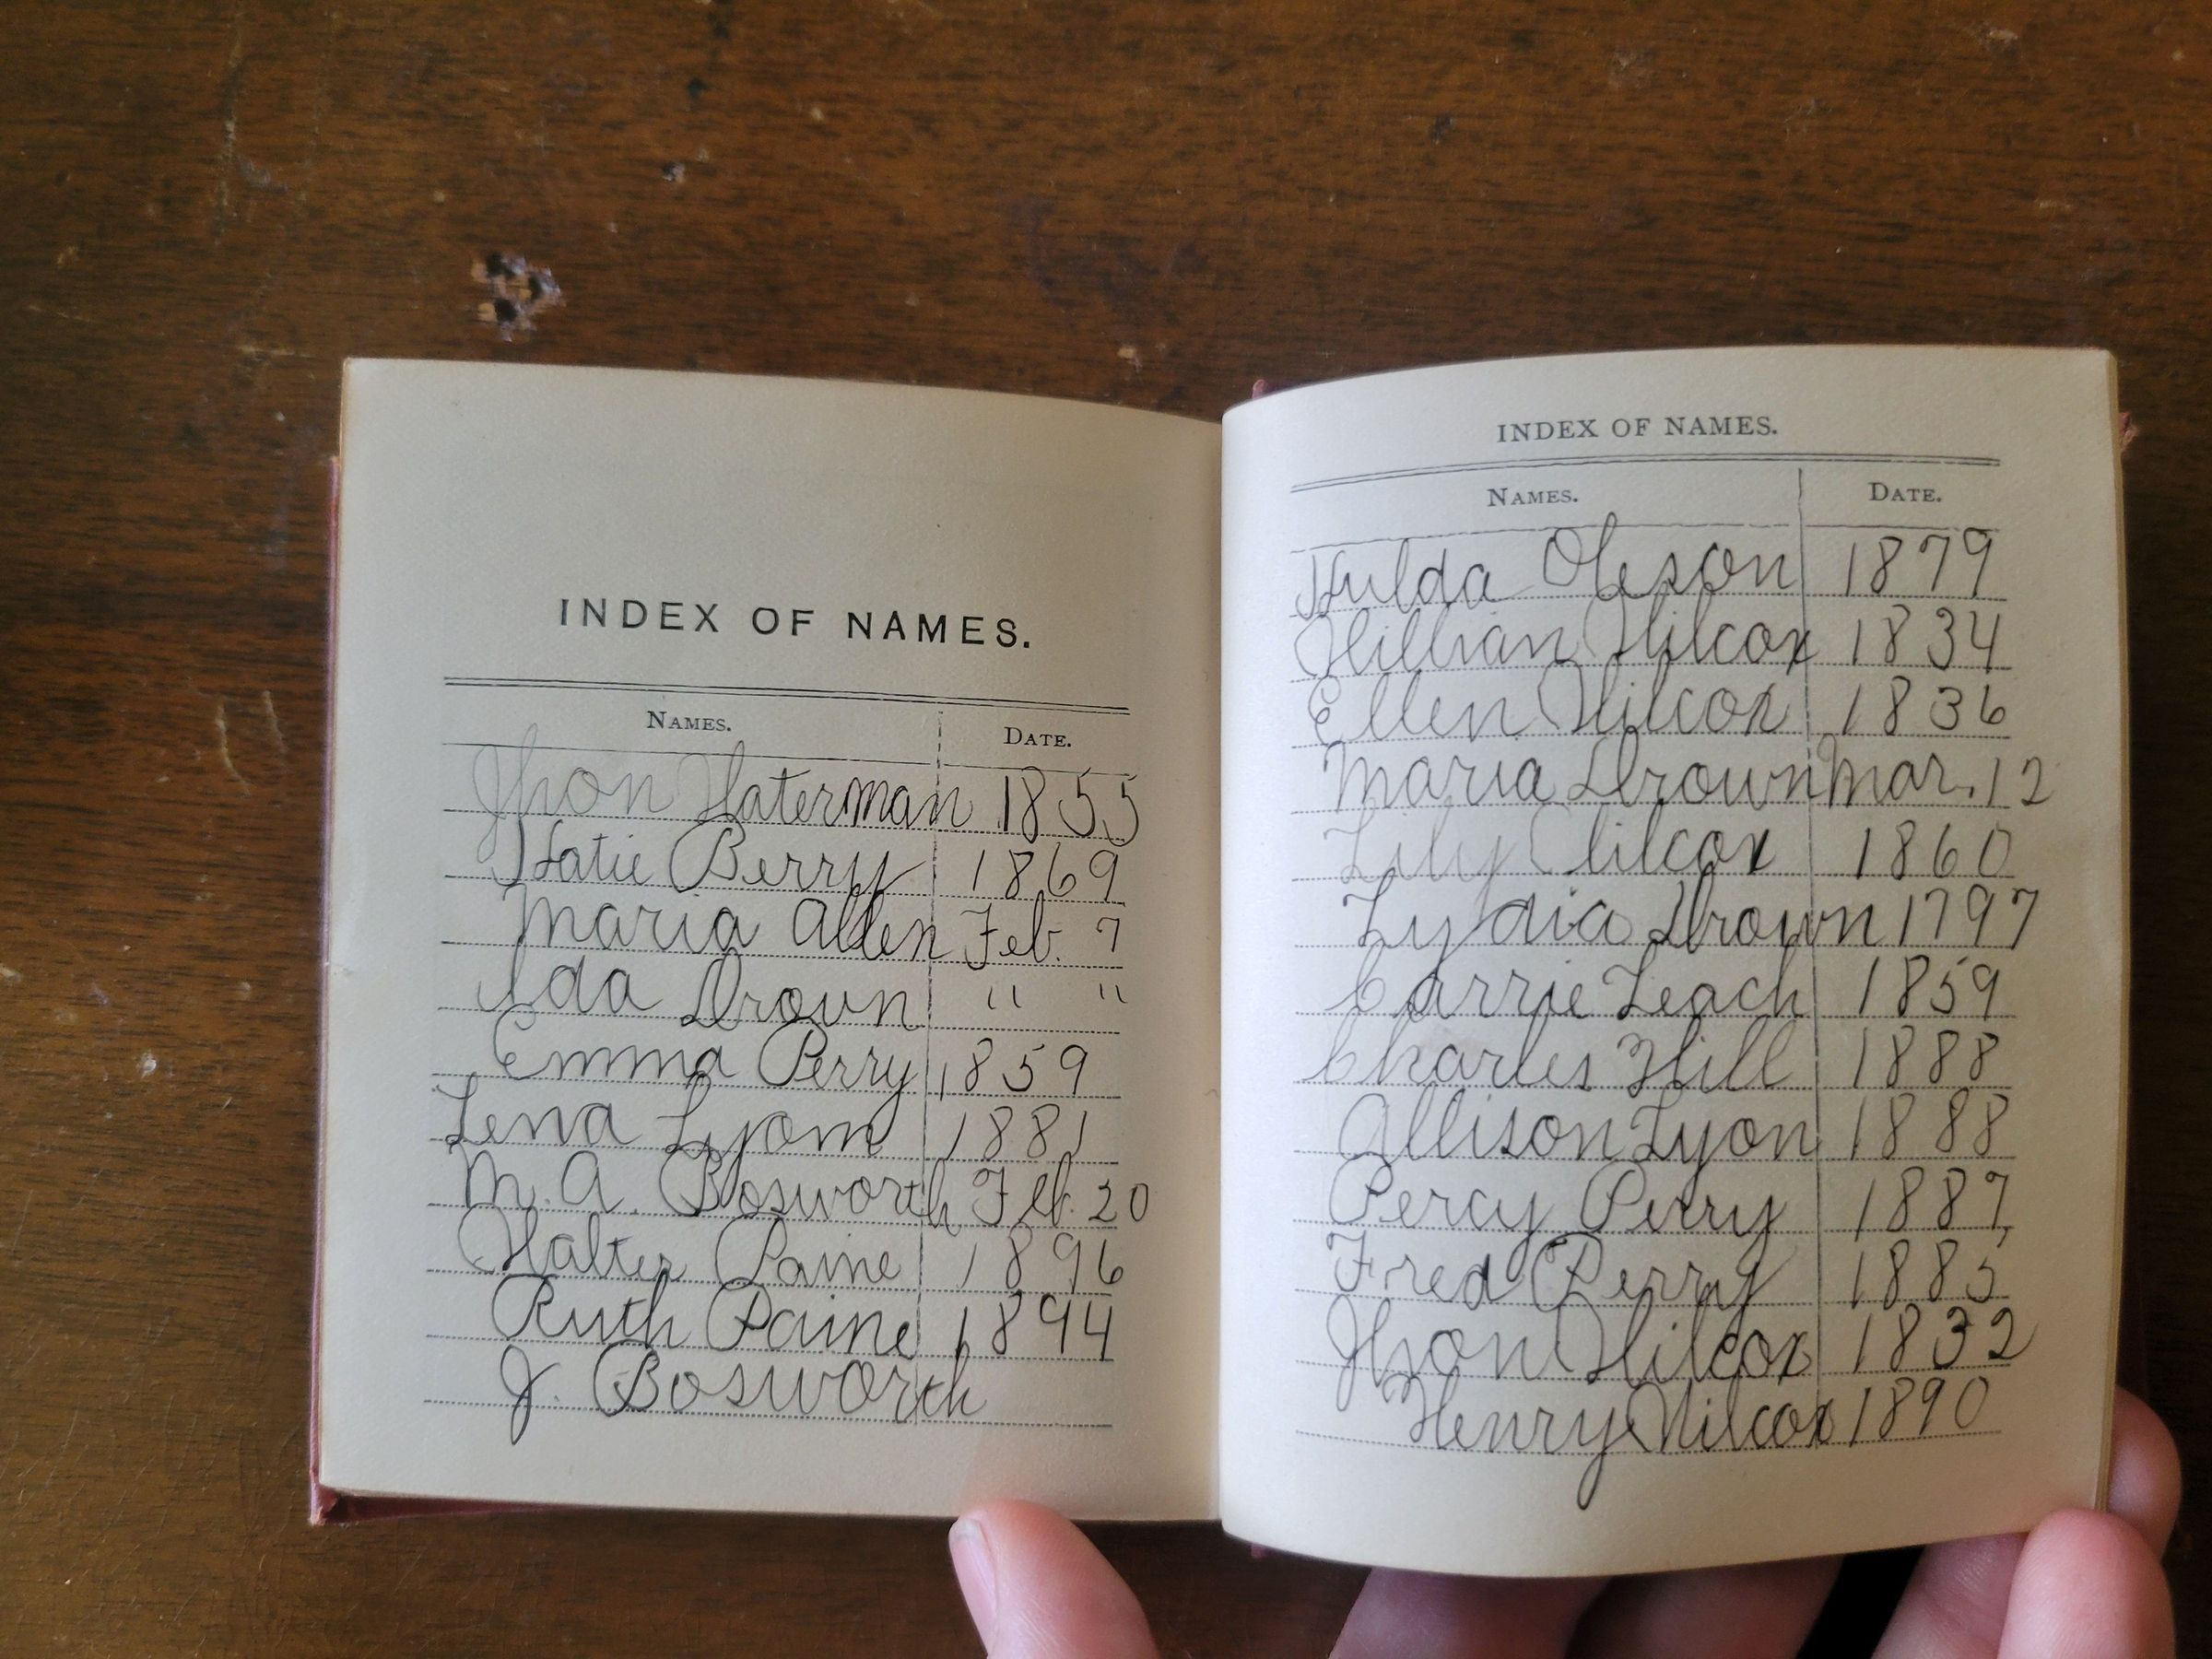 INDEX OF NAMES.
NAMES. DATE.
Jhon Waterman 1855
Katie Berry 1869
Maria Allen Feb. 7
Ida Drown " "
Emma Perry 1859
Lena Lyom 1881
M. A. Bosworth Feb. 20
Walter Paine 1896
Ruth Paine 1894
J. Bosworth
INDEX OF NAMES.
NAMES. DATE.
Hulda Oleson 1879
William Wilcox 1834
Ellen Wilcox 1836
Maria Drown Mar. 12
Lily Wilcox 1860
Lydia Drown 1797
Carrie Leach 1859
Charles Hill 1888
Allison Lyon 1888
Percy Perry 1887
Fred Perry 1885
Jhon Wilcox 1832
Henry Wilcox 1890